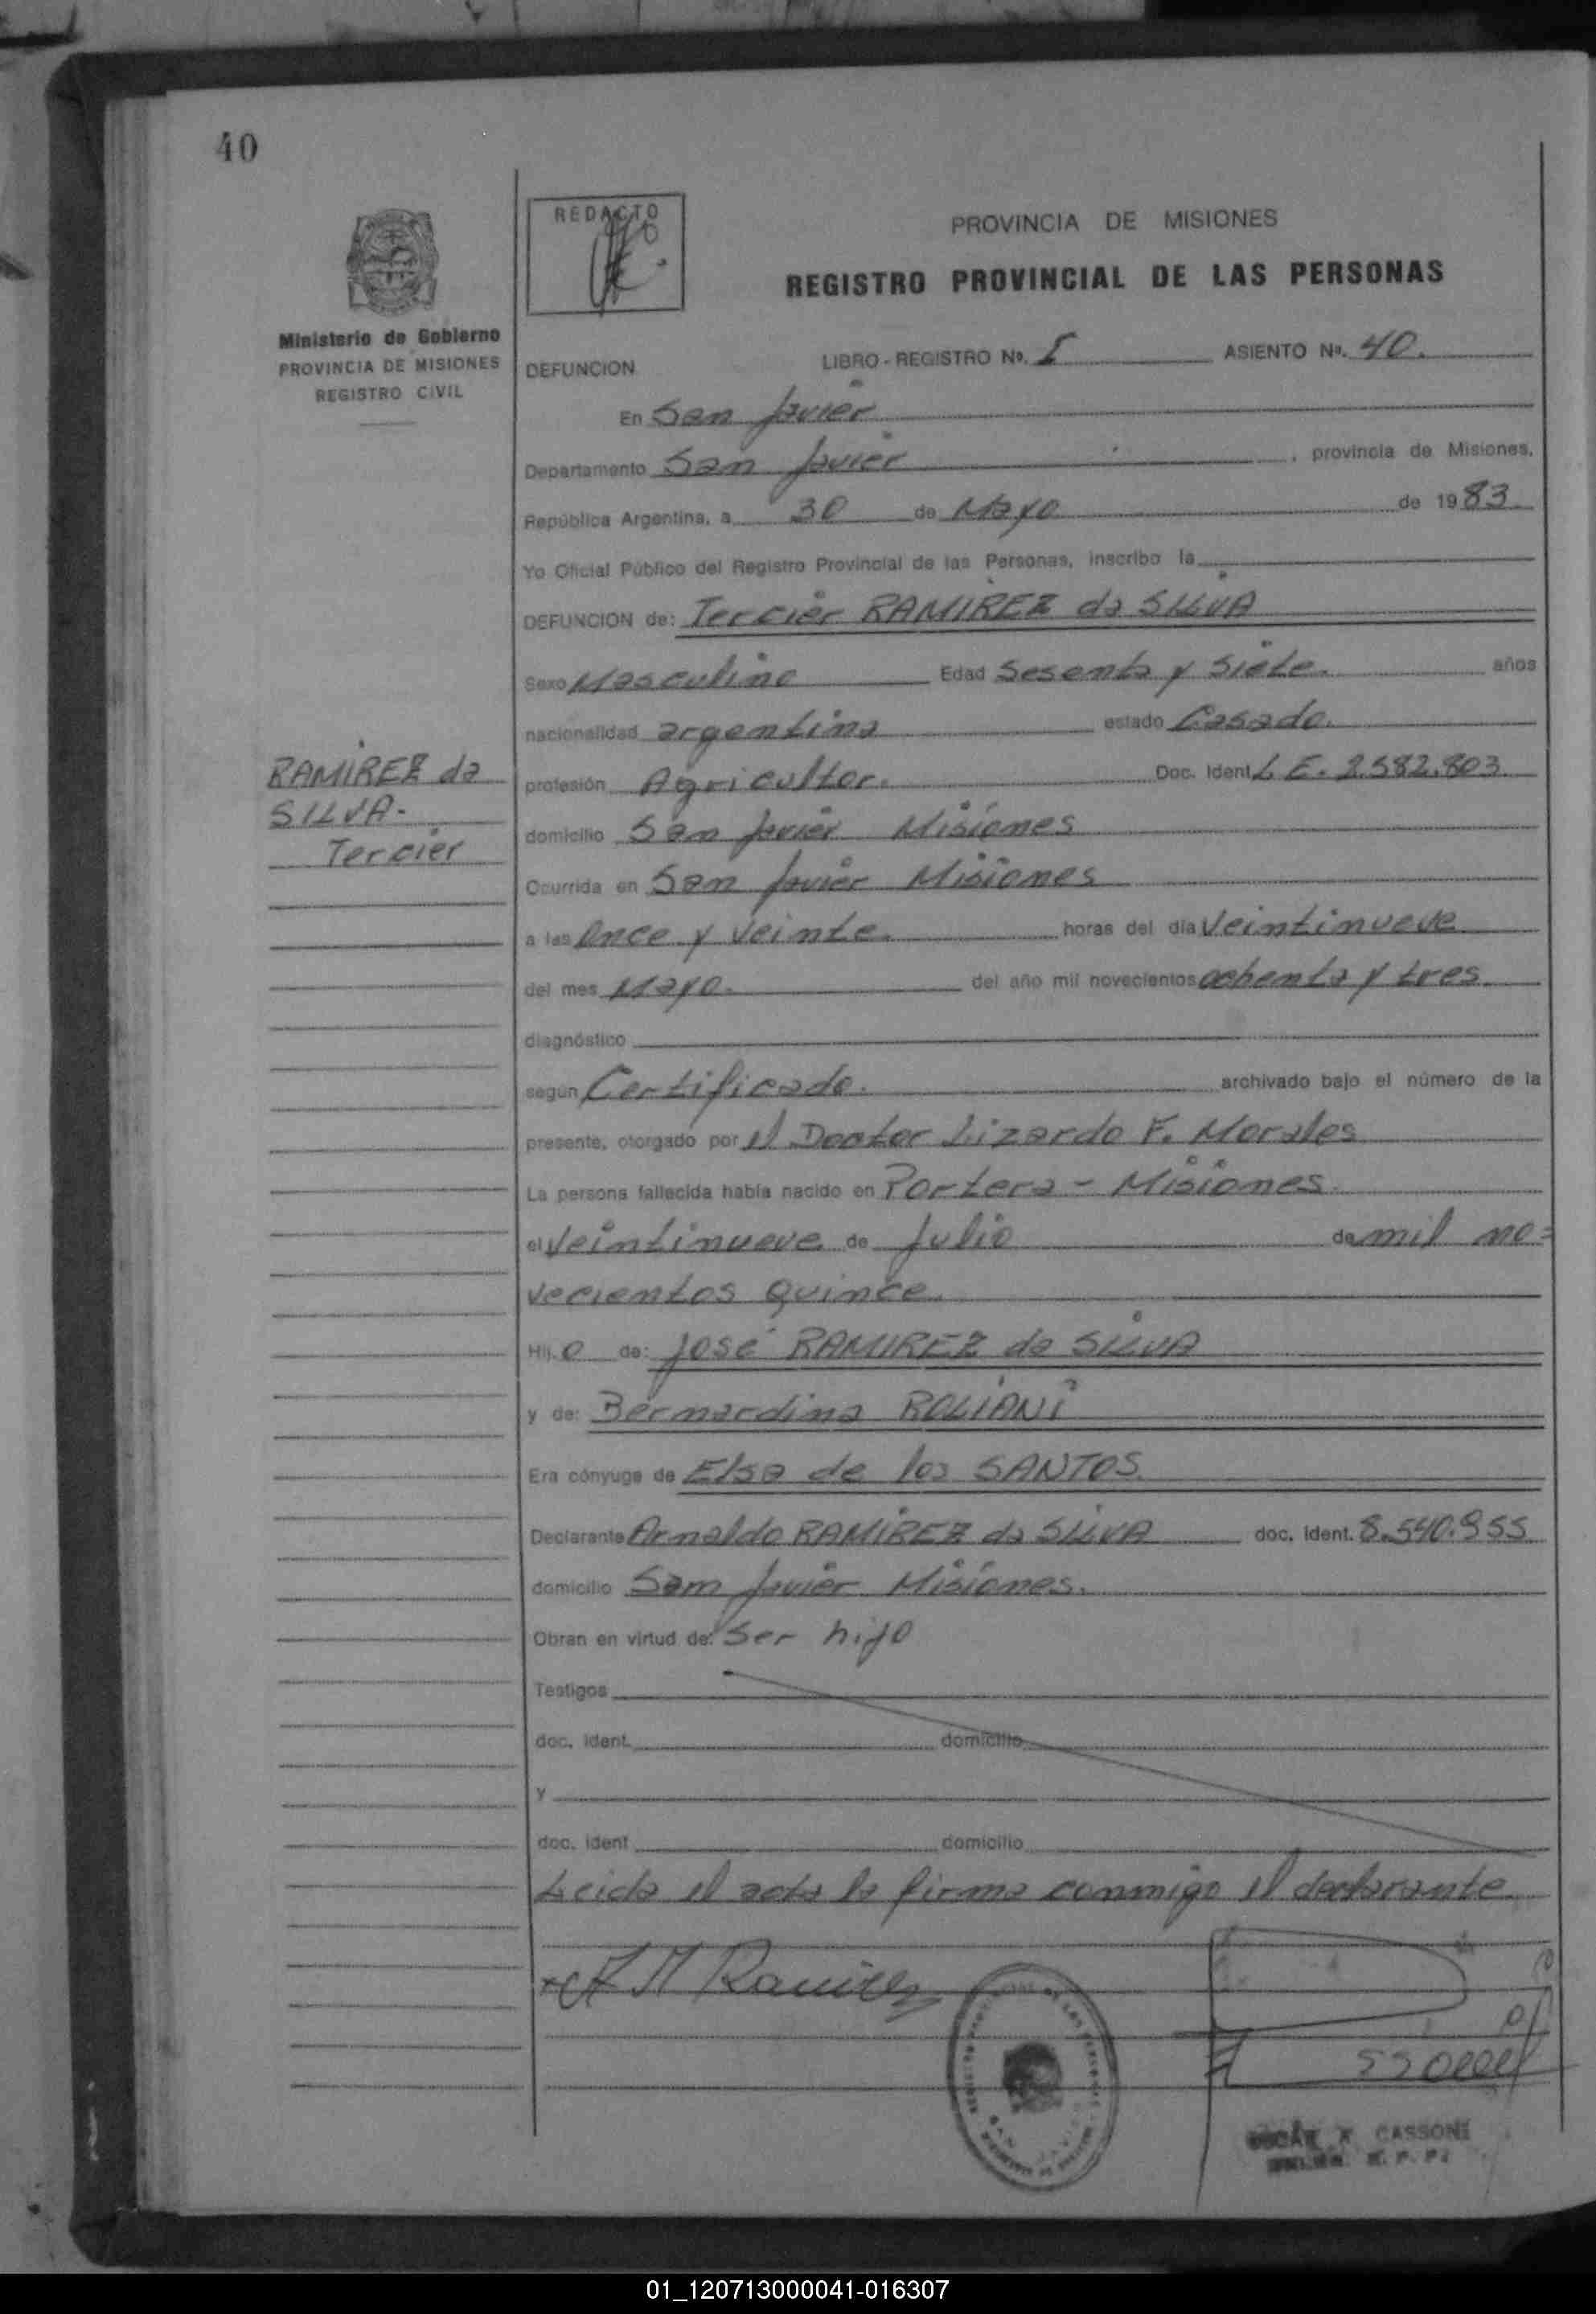 40
REDACTO
PROVINCIA DE MISIONES
REGISTRO PROVINCIAL DE LAS PERSONAS
Ministerio de Gobierno
PROVINCIA DE MISIONES
REGISTRO CIVIL
DEFUNCION LIBRO - REGISTRO Nº. I ASIENTO Nº. 40.
En San Javier
Departamento San Javier, provincia de Misiones,
República Argentina, a 30 de Mayo de 1983
Yo Oficial Público del Registro Provincial de las Personas, inscribo la
DEFUNCION de: Tercier RAMIREZ da SILVA
Sexo Masculino Edad Sesenta y Siete. años
nacionalidad argentina estado Casado.
RAMIREZ da
SILVA-
Tercier
profesión Agricultor. Doc. Ident. L E. 2.582.803
domicilio San Javier Misiones
Ocurrida en San Javier Misiones
a las Once y Veinte. horas del día Veintinueve
del mes Mayo. del año mil novecientos ochenta y tres
diagnóstico
según Certificado. archivado bajo el número de la
presente, otorgado por el Doctor Lizardo F. Morales
La persona fallecida había nacido en Portera - Misiones.
el Veintinueve de Julio de mil no=
vecientos Quince.
Hij o de: José RAMIREZ da SILVA
y de: Bernardina ROLIANI
Era cónyuge de Elsa de los SANTOS.
Declarante Arnaldo RAMIREZ da SILVA doc. ident. 8.540.955
domicilio San Javier Misiones.
Obran en virtud de: Ser hijo
Testigos
doc. ident. domicilio
y
doc. ident domicilio
Leida el acta la firma conmigo el declarante
Ramirez
CASSONI
01_120713000041-016307